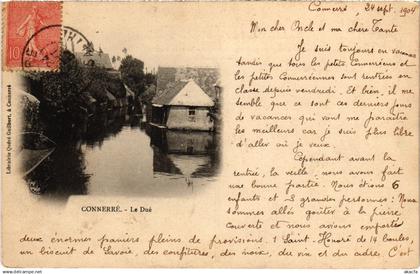 Connerré, 24 sept. 1904
Mon cher Oncle et ma chère Tante
Je suis toujours en vacances
tandis que tous les petits parisiens et
les petits Connerréens sont rentrés en
classe depuis vendredi. Et bien, il me
semble que ce sont ces derniers jours
de vacances qui vont me paraître
les meilleurs car je suis plus libre
d'aller où je veux.
Cependant avant la
rentrée, la veille nous avons fait
une bonne partie. Nous étions 6
enfants et 3 grandes personnes : Nous
sommes allés goûter à la pierre
couverte et nous avions emporté
deux énormes paniers pleins de provisions. 1 Saint-Honoré de 14 boules,
un biscuit de Savoie, des confitures, des noix, du vin et du cidre. C'était
10
Librairie Oudré-Guilbert, à Connerré
CONNERRÉ. - Le Dué